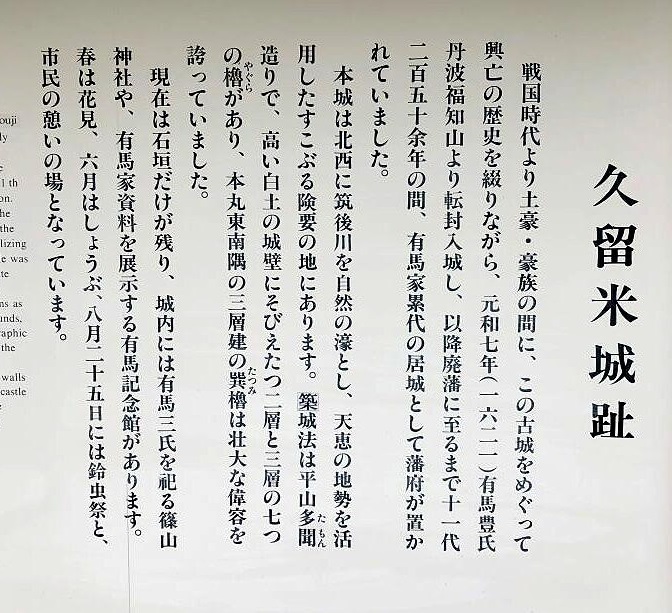 久留米城趾
戦国時代より土豪・豪族の間に、この古城をめぐって
興亡の歴史を綴りながら、元和七年(一六二一)有馬豊氏
丹波福知山より転封入城し、以降廃藩に至るまで十一代
二百五十余年の間、有馬家累代の居城として藩府が置か
れていました。
本城は北西に筑後川を自然の濠とし、天恵の地勢を活
用したすこぶる険要の地にあります。築城法は平山多聞
たもん
造りで、高い白土の城壁にそびえたつ二層と三層の七つ
の櫓があり、本丸東南隅の三層建の巽櫓は壮大な偉容を
やぐら
たつみ
誇っていました。
現在は石垣だけが残り、城内には有馬三氏を祀る篠山
神社や、有馬家資料を展示する有馬記念館があります。
春は花見、六月はしょうぶ、八月二十五日には鈴虫祭と、
市民の憩いの場となっています。
ouji
ly
th
on.
he
the
lizing
e was
te
ns as
unds,
raphic
the
walls
castle